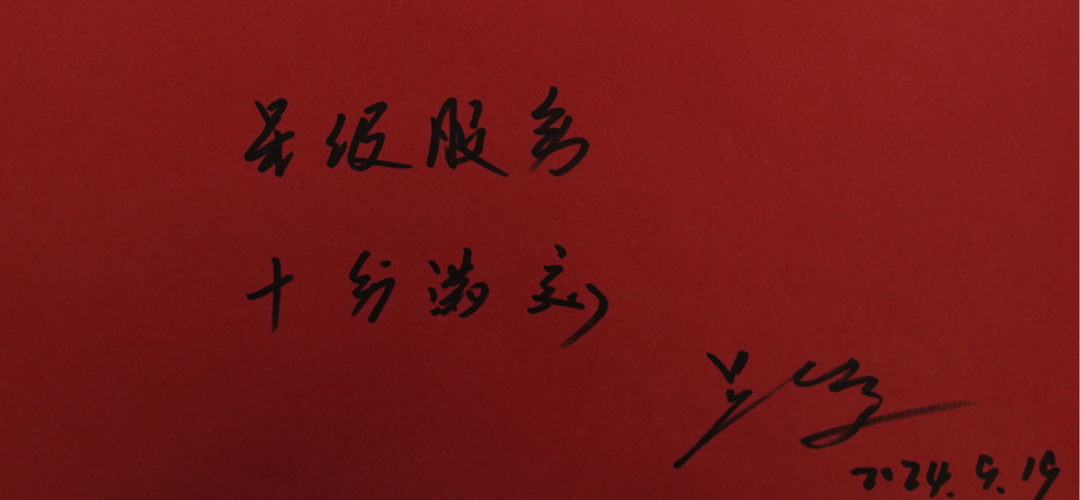 星级服务
十分满意
2024.9.19